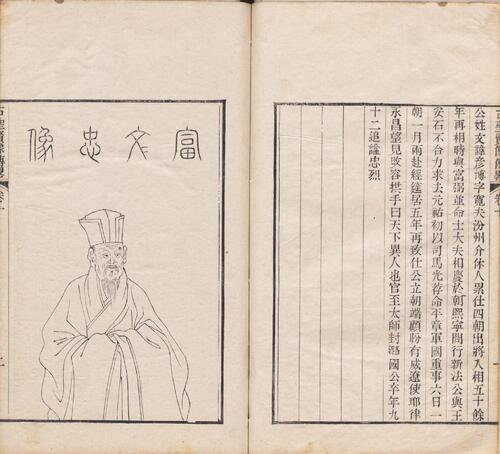 公姓文諱彦博字寬夫汾州介休人累仕四朝出將入相五十餘
年再相時與富弼並命士大夫相慶於朝熙寧間行新法公與王
安石不合力求去元祐初以司馬光荐命平章軍國重事六日一
朝一月兩赴經筵居五年再致仕公立朝端顧盼有威遼使耶律
永昌望見改容拱手曰天下異人也官至太師封潞國公卒年九
十二追謚忠烈
富文忠像